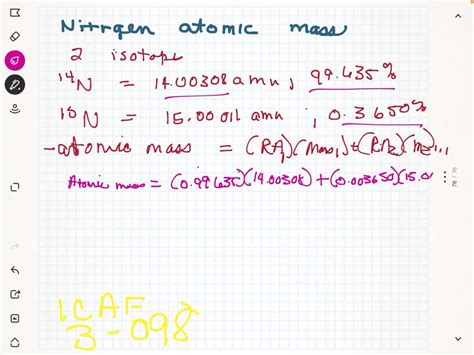 Nitrgen atomic mass
2 isotope
¹⁴N = 14.00308 amu, 99.635%
¹⁵N = 15.00011 amu, 0.3650%
- atomic mass = (RA₁)(mass₁)+(RA₂)(m₂)...
Atomic mass = (0.99635)(14.00308)+(0.003650)(15.0
76 / 76
1CAF
3-098